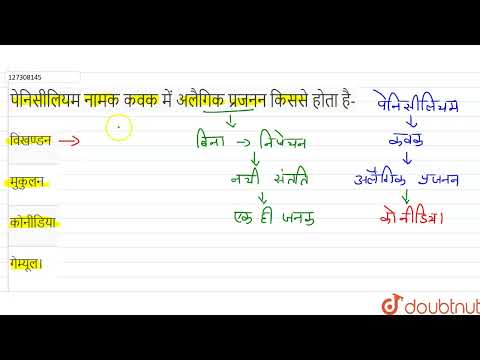 127308145
पेनिसीलियम नामक कवक में अलैगिक प्रजनन किससे होता है-
विखण्डन
मुकुलन
कोनीडिया
गेम्यूल।
बिना → निषेचन
नयी संतति
एक ही जनक
पेनिसीलियम
कवक
अलैगिक प्रजनन
कोनीडिया
doubtnut